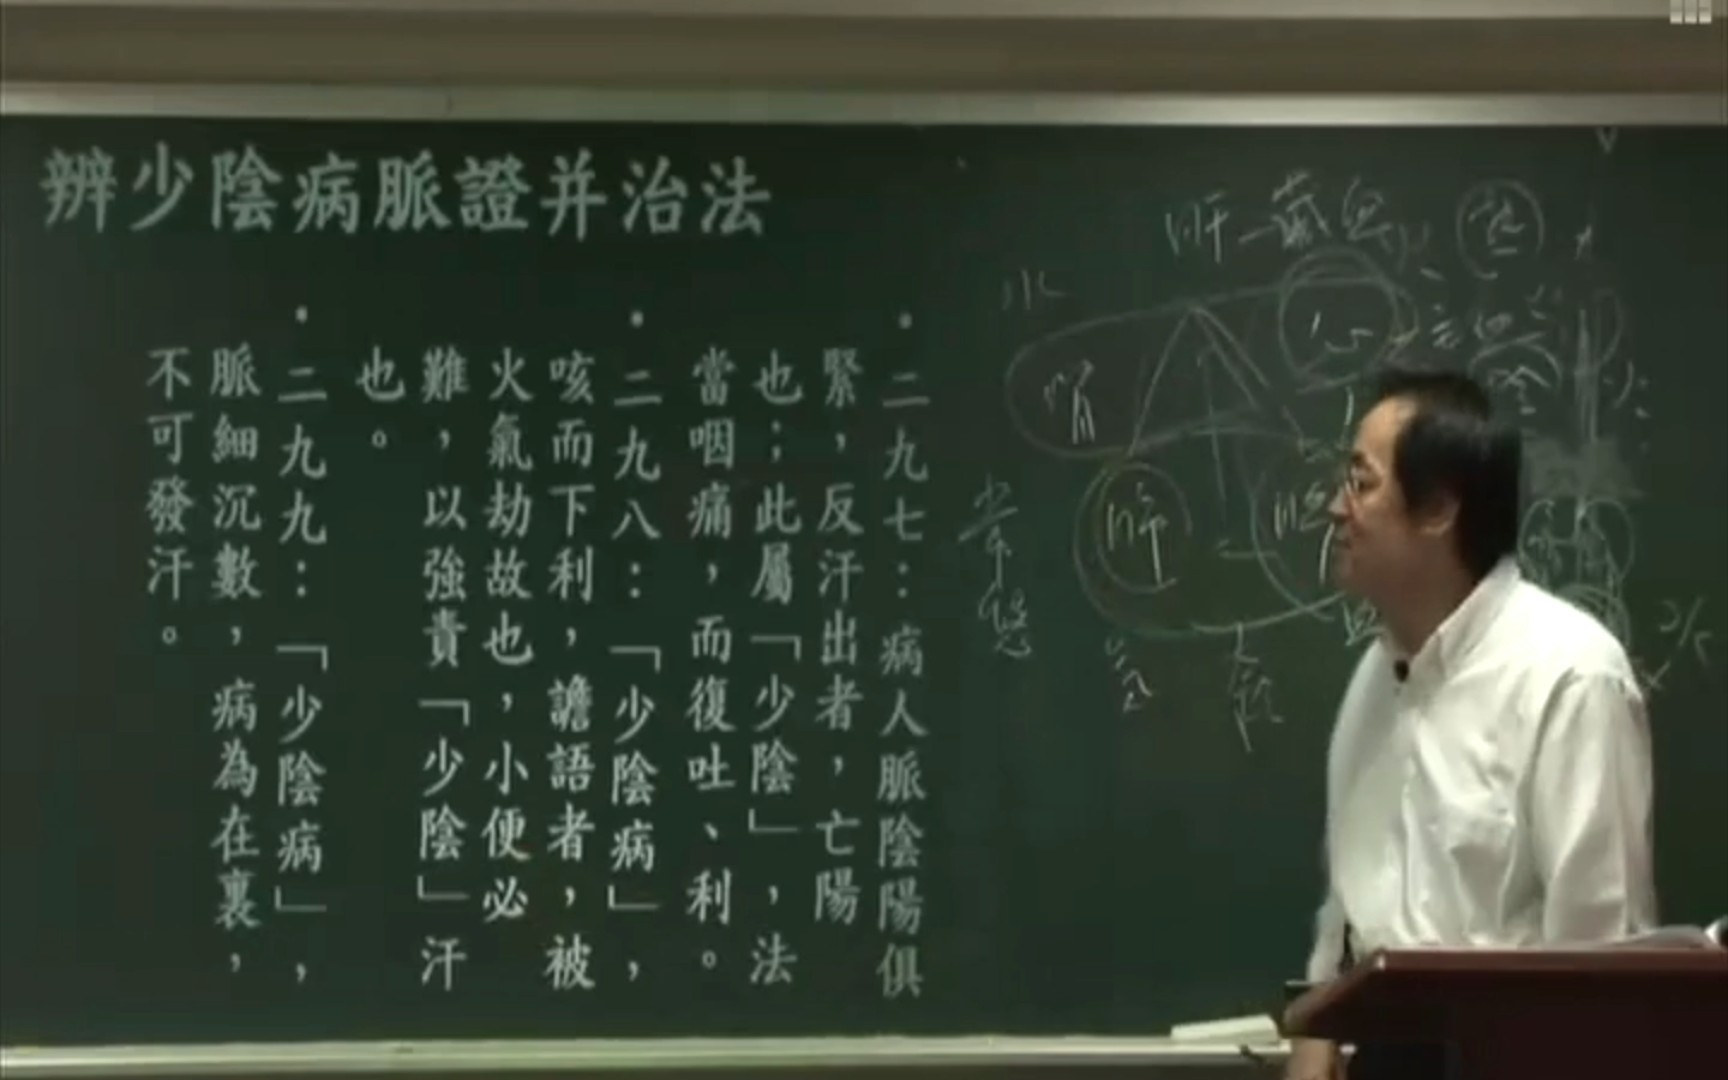 辨少陰病脈證并治法
•二九七：病人脈陰陽俱
緊，反汗出者，亡陽
也；此屬「少陰」，法
當咽痛，而復吐、利。
•二九八：「少陰病」，
咳而下利，譫語者，被
火氣劫故也，小便必
難，以強責「少陰」汗
也。
•二九九：「少陰病」，
脈細沉數，病為在裏，
不可發汗。
肝－藏血
水
心
腎
肺
氣